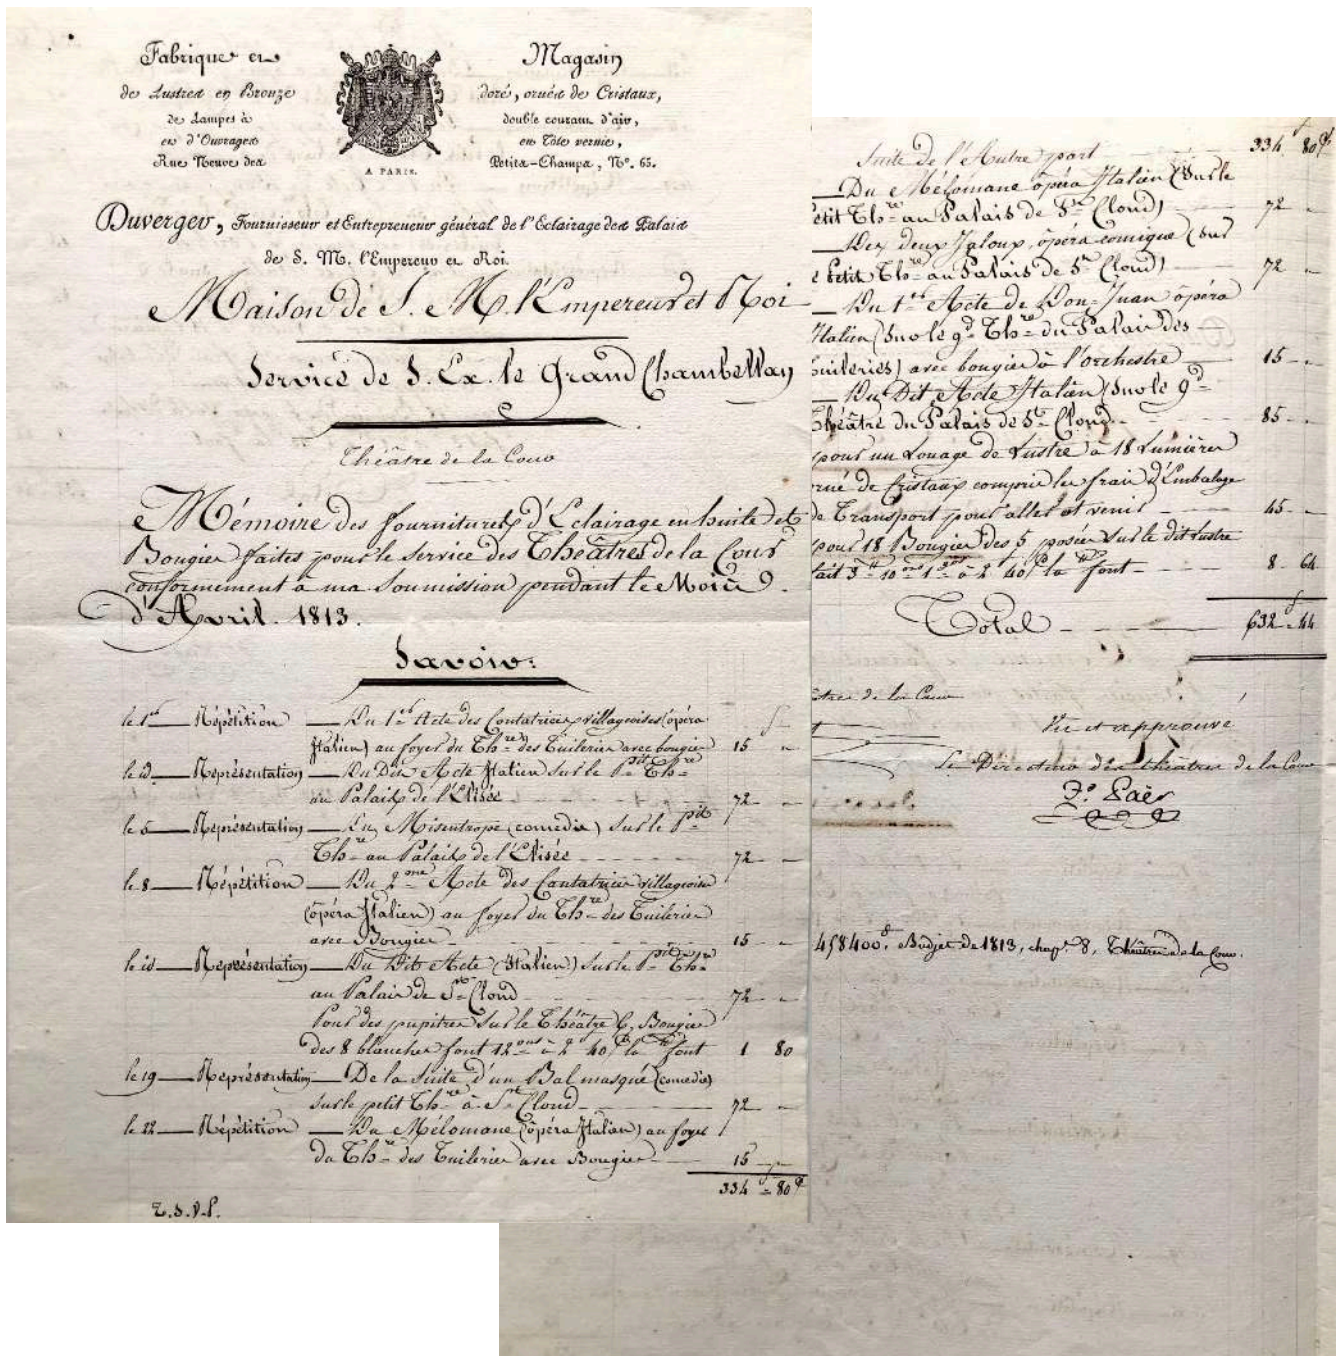 Fabrique et Magasin
de Lustres en Bronze doré, ornés de Cristaux,
de Lampes à double courant d'air,
et d'Ouvrages en Tôle vernie,
Rue Neuve des Petits-Champs, N°. 65.
A PARIS.
Duverger, Fournisseur et Entrepreneur général de l'Eclairage des Palais
de S. M. l'Empereur et Roi.
Maison de S. M. l'Empereur et Roi
Service de S. Ex. le Grand Chambellan
Théâtre de la Cour
Mémoire des fournitures d'Eclairage en huile et
Bougies faites pour le service des Théâtres de la Cour
conformement à ma soumission pendant le Mois
d'Avril. 1813.
Savoir:
le 1er — Répétition — Du 1er Acte des Cantatrices villageoises (opéra
Italien) au foyer du Thre des Tuileries avec bougies 15 "
le d — Représentation — Du Dit Acte Italien sur le Pit Thre
au Palais de l'Elisée 72 "
le 5 — Représentation — Du Misentrope (comedie) sur le pit
Thre au Palais de l'Elisée 72 "
le 8 — Répétition — Du 2me Acte des Cantatrices villageoises
(opéra Italien) au foyer du Thre des Tuileries
avec Bougies 15 "
le d — Représentation — Du Dit Acte (Italien) sur le Pit Thre
au Palais de St Cloud 72 "
Pour des pupitres sur le Théâtre 6 Bougies
des 8 blanches font 12 ons à 2f 40c la # font 1 80
le 19 — Représentation — De la Suite d'un Bal masqué (comedie)
sur le petit Thre à St Cloud 72 "
le 22 — Répétition — Du Mélomane (opéra Italien) au foyer
du Thre des Tuileries avec Bougies 15 "
334 = 80c
T.S.V.P.
Suite de l'Autre part 334 80c
— Du Mélomane opéra Italien (sur le
etit Thre au Palais de St Cloud) 72 "
— Des deux Jaloux, opéra comique (sur
e Petit Thre au Palais de St Cloud) 72 "
— Du 1er Acte de Don-Juan opéra
Italien (sur le gd Thre du Palais des
uileries) avec bougies à l'orchestre 15 "
— Du Dit Acte Italien (sur le gd
Théâtre du Palais de St Cloud 85 "
pour un Louage de Lustre à 18 Lumières
orné de Cristaux compris les frais d'Embalage
de Transport pour aller et venir 45 "
pour 18 Bougies des 5 posées sur le dit lustre
fait 3# 10 ons 1 gros à 2f 40c la # font 8 64
Total 632 = 44
tres de la Cour
Vu et approuvé
Le Directeur des théâtres de la Cour
Fo. Paër
458400f. Budjet de 1813, chape. 8, Théâtres de la Cour.